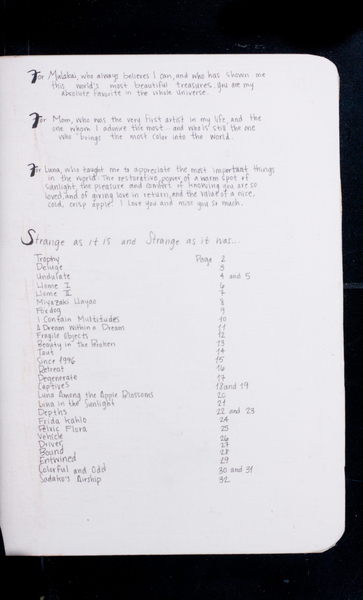 For Malakai, who always believes I can, and who has shown me
this world's most beautiful treasures. You are my
absolute favorite in the whole universe.
For Mom, who was the very first artist in my life, and the
one whom I admire the most - and who is still the one
who brings the most color into the world.
For Luna, who taught me to appreciate the most important things
in the world. The restorative power of a warm spot of
sunlight, the pleasure and comfort of knowing you are so
loved, and of giving love in return, and the value of a nice,
cold, crisp apple. I love you and miss you so much.
Strange as it is and Strange as it was...
Trophy Page 2
Deluge 3
Undulate 4 and 5
Llome I 6
Llome II 7
Miyazaki Hayao 8
Fox dog 9
I Contain Multitudes 10
A Dream Within a Dream 11
Fragile Objects 12
Beauty in the Broken 13
Taut 14
Since 1996 15
Retreat 16
Degenerate 17
Captives 18 and 19
Luna Among the Apple Blossoms 20
Luna in the Sunlight 21
Depths 22 and 23
Frida Kahlo 24
Pelvic Flora 25
Vehicle 26
Driver 27
Bound 28
Entwined 29
Colorful and Odd 30 and 31
Sadako's Airship 32